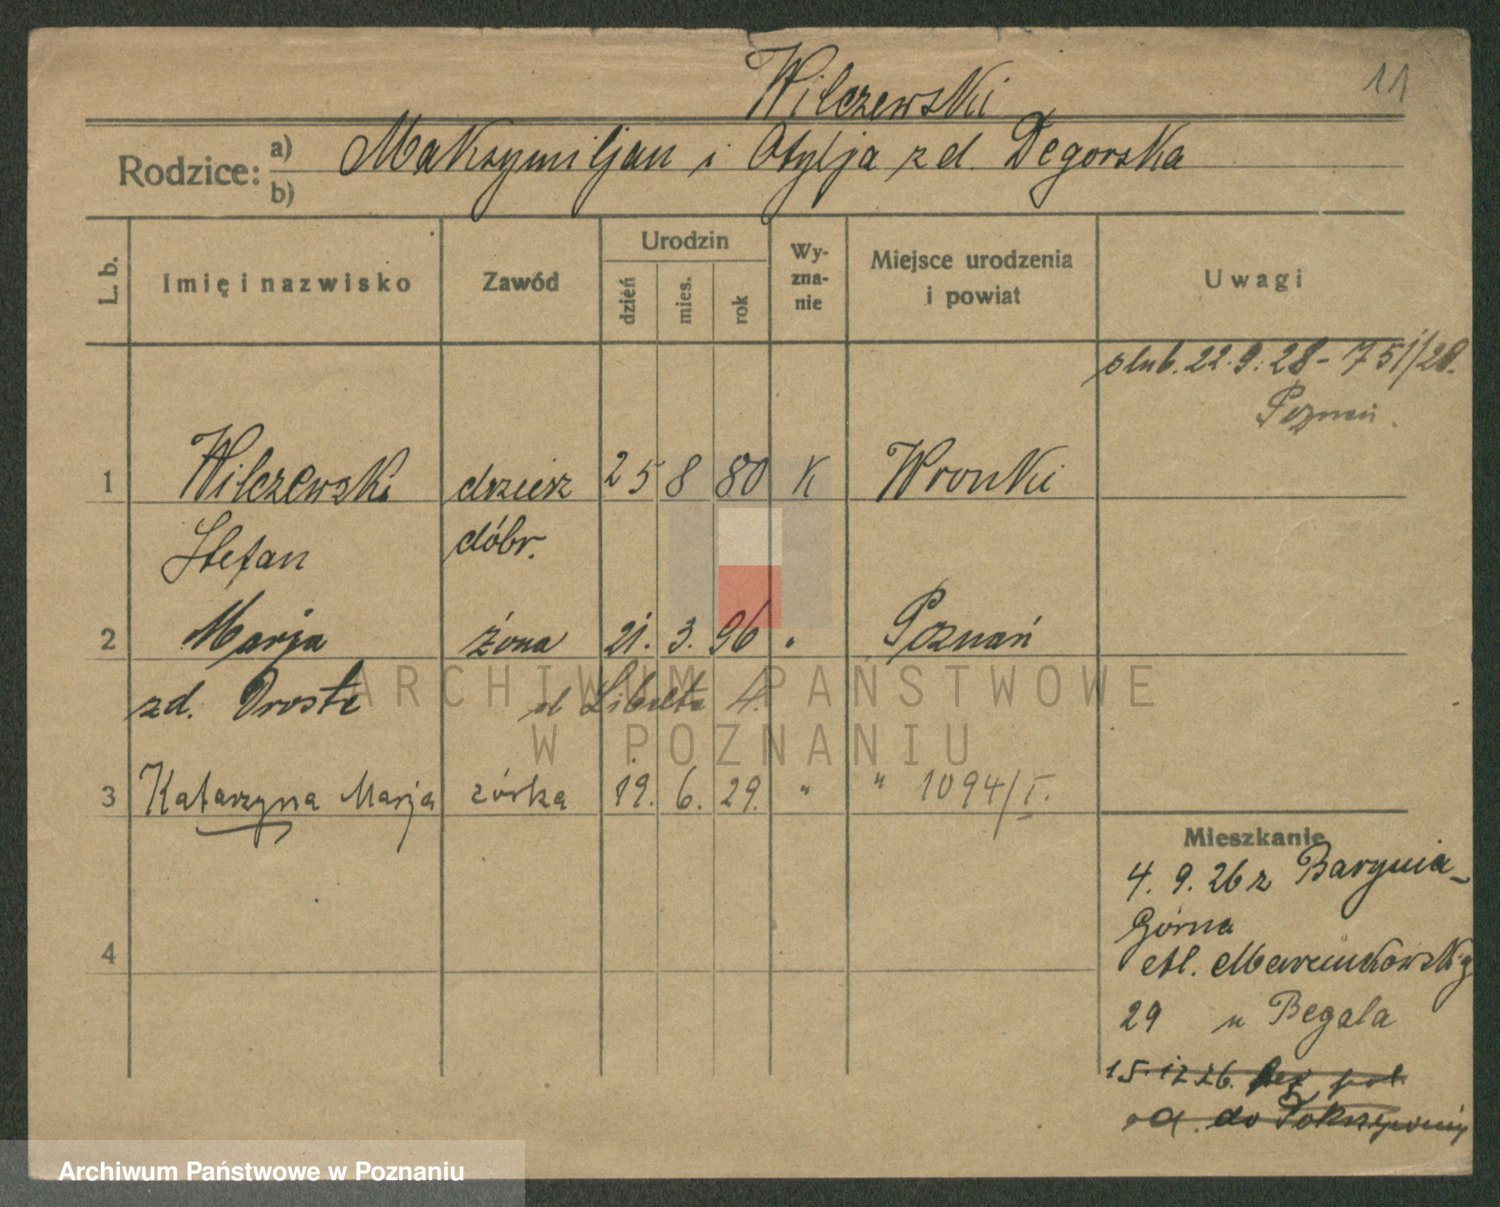 11
Wilczewski
Rodzice: a) b) Maksymiljan i Otylja zd. Degorska
L. b. Imię i nazwisko Zawód Urodzin dzień mies. rok Wyznanie Miejsce urodzenia i powiat Uwagi
slub. 22.9.28 - 751/28.
Poznań.
1 Wilczewski dzierz 25 8 80 K Wronki
Stefan dóbr.
2 Marja żona 21. 3. 96 " Poznań
zd. Droste Libelta 4.
3 Katarzyna Marja córka 19. 6. 29. " " 1094/I.
Mieszkanie
4. 9. 26 z
Górna
4
Al. Marcinkowskig
29 u Begala
15. 12 26.
do
ARCHIWUM PAŃSTWOWE
W POZNANIU
Archiwum Państwowe w Poznaniu